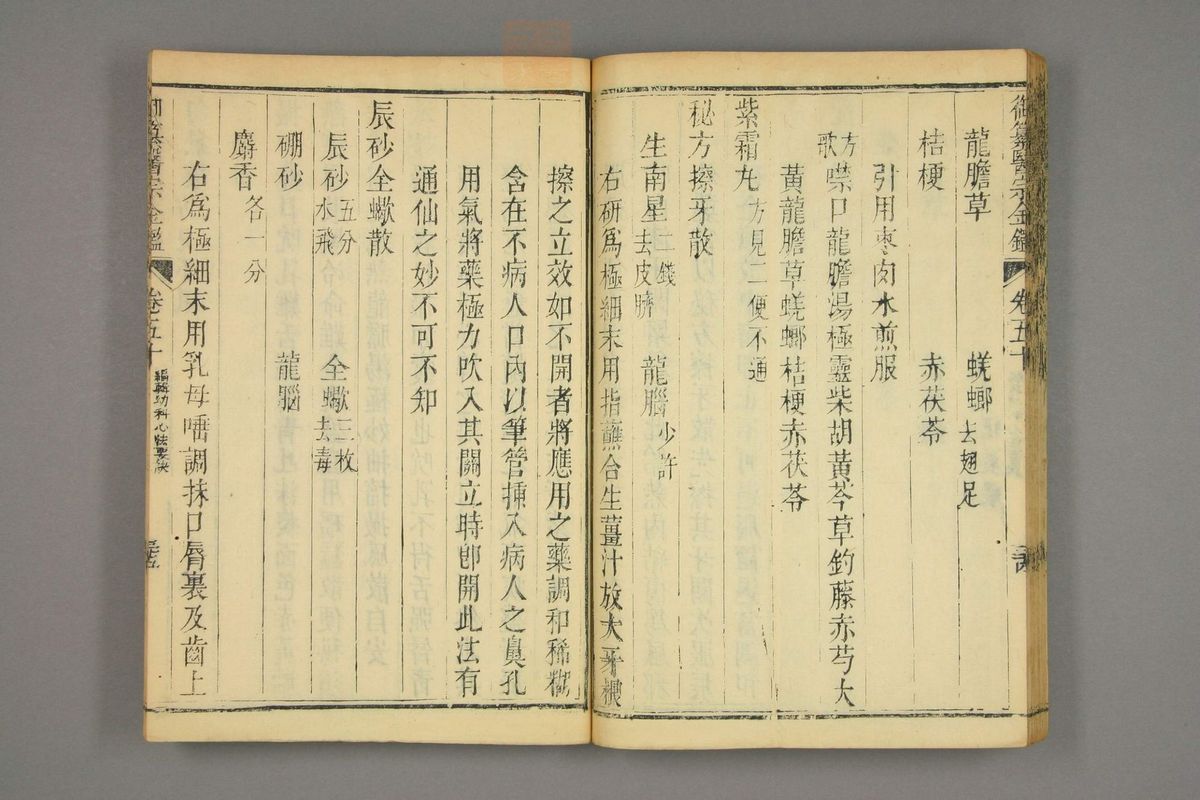 御纂醫宗金鑑 卷五十
龍膽草 蜣螂去翅足
桔梗 赤茯苓
引用棗肉水煎服
方歌 噤口龍膽湯極靈柴胡黃芩草鈎藤赤芍大
黃龍膽草蜣螂桔梗赤茯苓
紫霜丸 方見二便不通
秘方擦牙散
生南星二錢去皮臍 龍腦少許
右研為極細末用指蘸合生薑汁放大牙根
擦之立效如不開者將應用之藥調和稀糊
含在不病人口內以筆管揷入病人之鼻孔
用氣將藥極力吹入其關立時卽開此法有
通仙之妙不可不知
辰砂全蠍散
辰砂五分水飛 全蠍三枚去毒
硼砂 龍腦
麝香各一分
右為極細末用乳母唾調抹口唇裏及齒上
御纂醫宗金鑑 卷五十 編輯幼科心法要訣